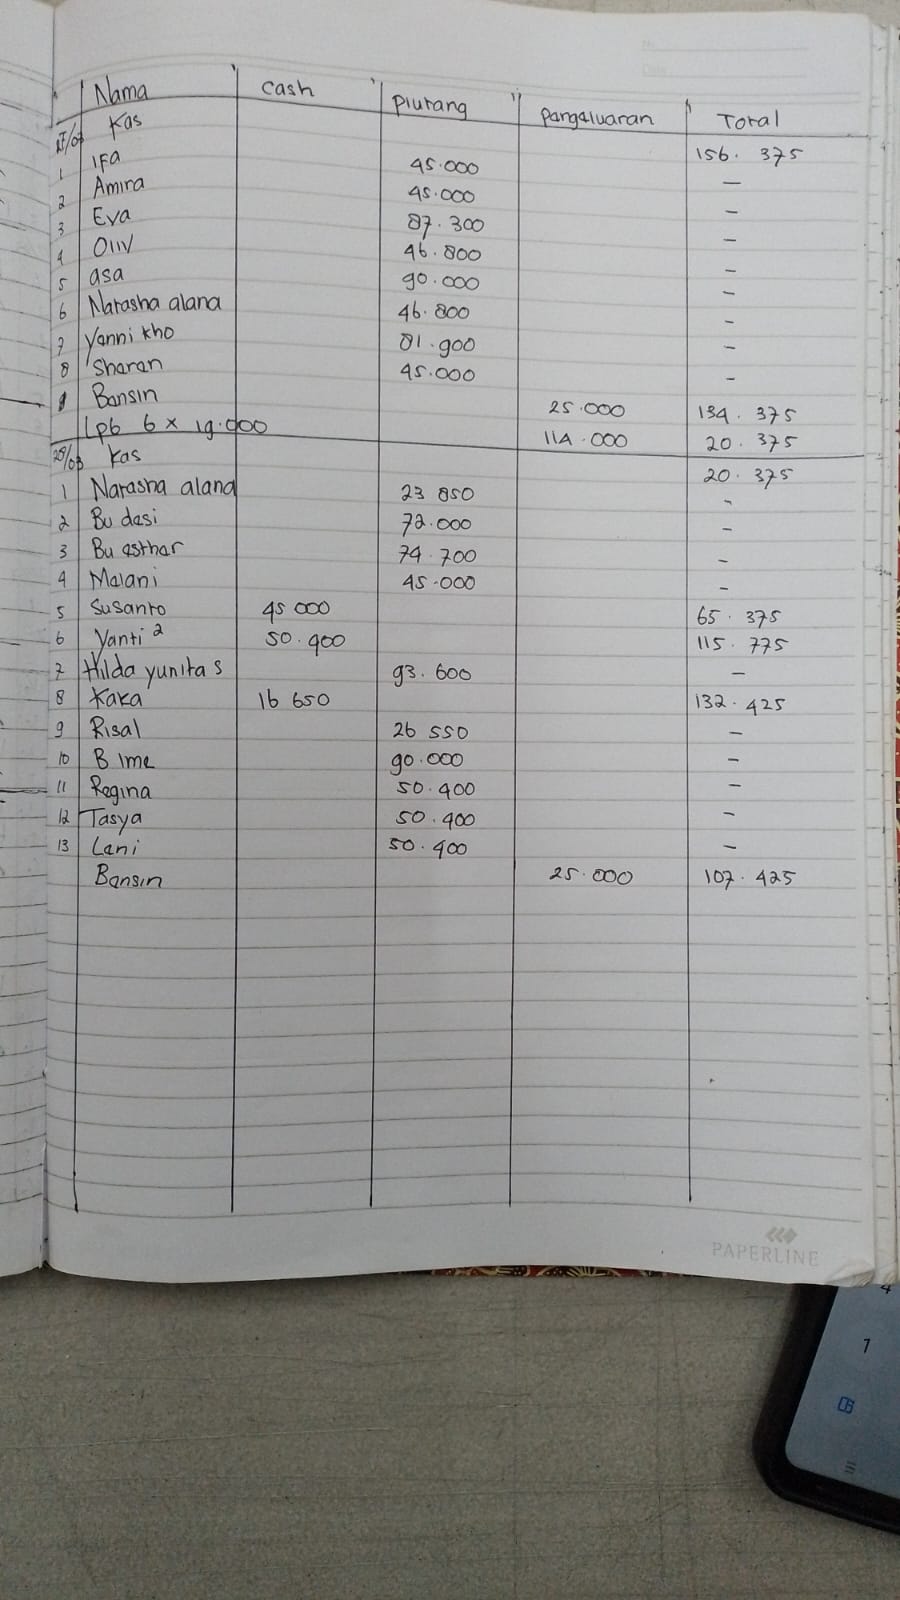 Nama Cash Piutang Pengeluaran Total
27/03 Kas 156.375
1 Ifa 45.000 —
2 Amira 45.000 —
3 Eva 87.300 —
4 Oliv 46.800 —
5 asa 90.000 —
6 Natasha alana 46.800 —
7 Yenni kho 81.900 —
8 Sharen 45.000 —
Bensin 25.000 134.375
Lpb 6 x 19.000 114.000 20.375
28/03 Kas 20.375
1 Natasha alana 23 850 -
2 Bu desi 72.000 -
3 Bu esther 74.700 -
4 Melani 45.000 -
5 Susanto 45 000 65.375
6 Yanti 2 50.400 115.775
7 Hilda yunita s 93.600 —
8 Kaka 16 650 132.425
9 Risal 26 550 —
10 B ime 90.000 —
11 Regina 50.400 —
12 Tasya 50.400 —
13 Leni 50.400 —
Bensin 25.000 107.425
PAPERLINE